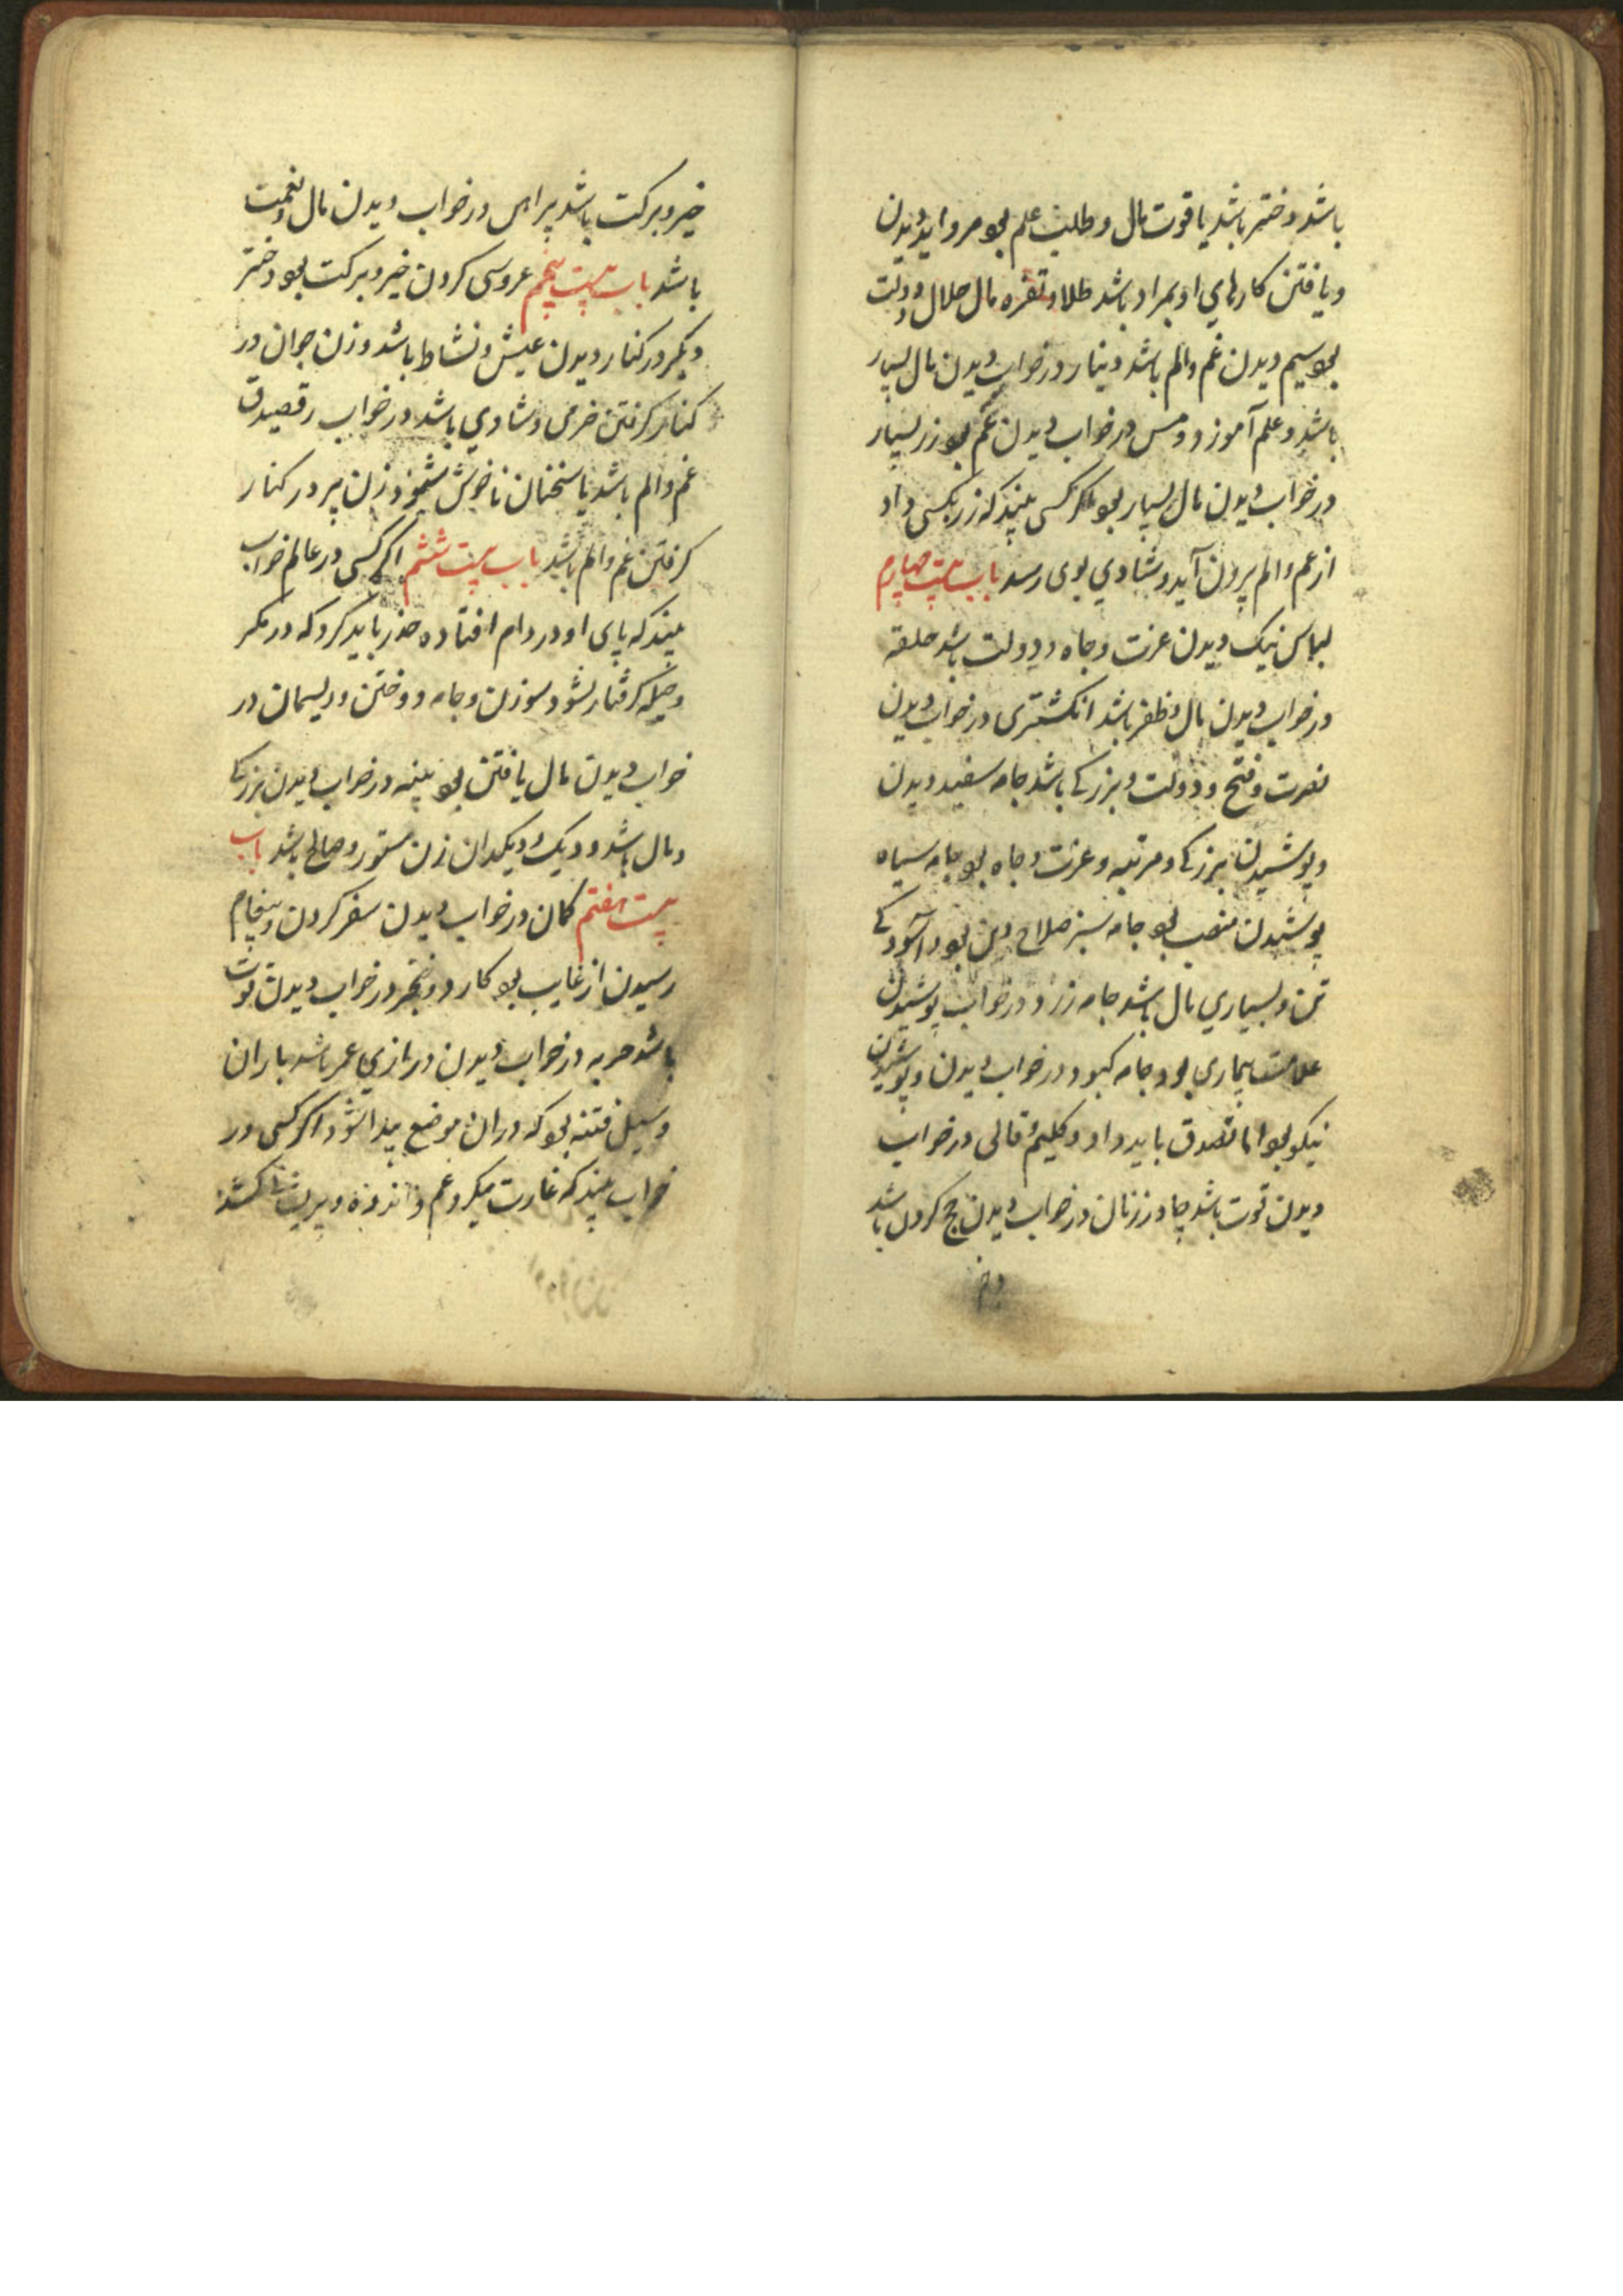 باشد دختر باشد یاقوت مال و طلب علم بود مروارید دیدن
و یافتن کارهای او بمراد باشد طلا و نقره مال حلال و دولت
بود سیم دیدن غم و الم باشد دینار در خواب دیدن مال بسیار
باشد و علم آموزد و مس در خواب دیدن غم بود زر بسیار
در خواب دیدن مال بسیار بود اگر کسی بیند که زر بکسی داد
از غم و الم بیرون آید و شادی بوی رسد باب بیست چهارم
لباس نیک دیدن عزت و جاه و دولت باشد حلقه
در خواب دیدن مال و ظفر باشد انکشتری در خواب دیدن
نصرت و فتح و دولت و بزرکی باشد جامه سفید دیدن
و پوشیدن بزرکی و مرتبه و عزت و جاه بود جامه سیاه
پوشیدن منصب بود جامه سبز صلاح دین بود و آسودکی
تن و بسیاری مال باشد جامه زرد در خواب پوشیدن
علامت بیماری بود و جامه کبود در خواب دیدن و پوشیدن
نیکو بود اما تصدق باید داد و کلیم و قالی در خواب
دیدن قوت باشد چادر زنان در خواب دیدن حج کردن باشد
خیر و برکت باشد پیراهن در خواب دیدن مال و نعمت
باشد باب بیست پنجم عروسی کردن خیر و برکت بود دختر
دیکر در کنار دیدن عیش و نشاط باشد و زن جوان در
کنار کرفتن خرمی و شادی باشد در خواب رقصیدن
غم و الم باشد یا سخنان ناخوش شنود زن پیر در کنار
کرفتن غم و الم باشد باب بیست ششم اکر کسی در عالم خواب
بیند که پای او در دام افتاده حذر باید کرد که در مکر
و حیله کرفتار نشود سوزن و جامه دوختن و ریسمان در
خواب دیدن مال یافتن بود پنبه در خواب دیدن بزرکی
و مال باشد و دیک و دیکدان زن مستور و صالح باشد باب
بیست هفتم کمان در خواب دیدن سفر کردن و پیغام
رسیدن از غایب بود کارد و خنجر در خواب دیدن قوت
باشد حربه در خواب دیدن درازی عمر باشد باران
و سیل فتنه بود که در ان موضع پیدا شود اکر کسی در
خواب بیند که غارت میکرد غم و اندوه و پریشانی کشد